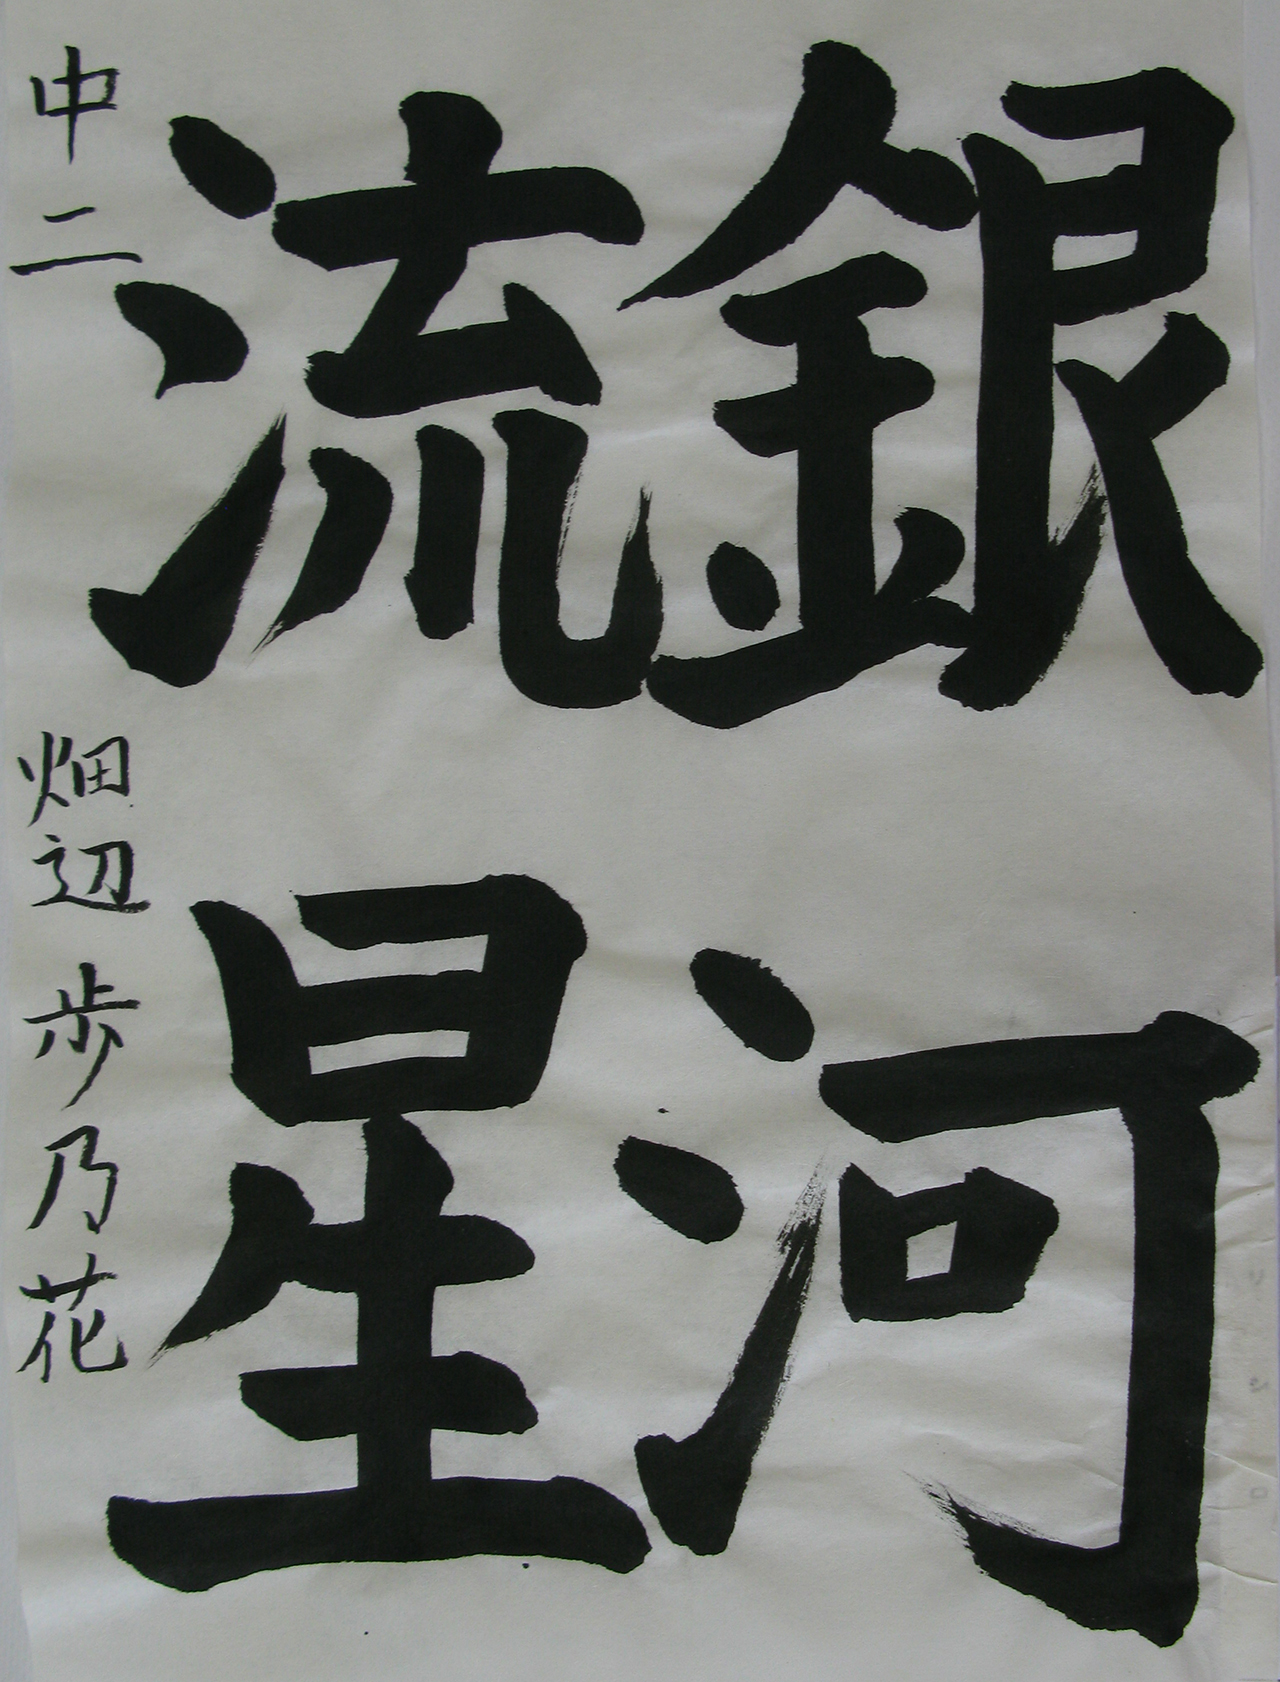 銀河
流星
中二 畑辺歩乃花